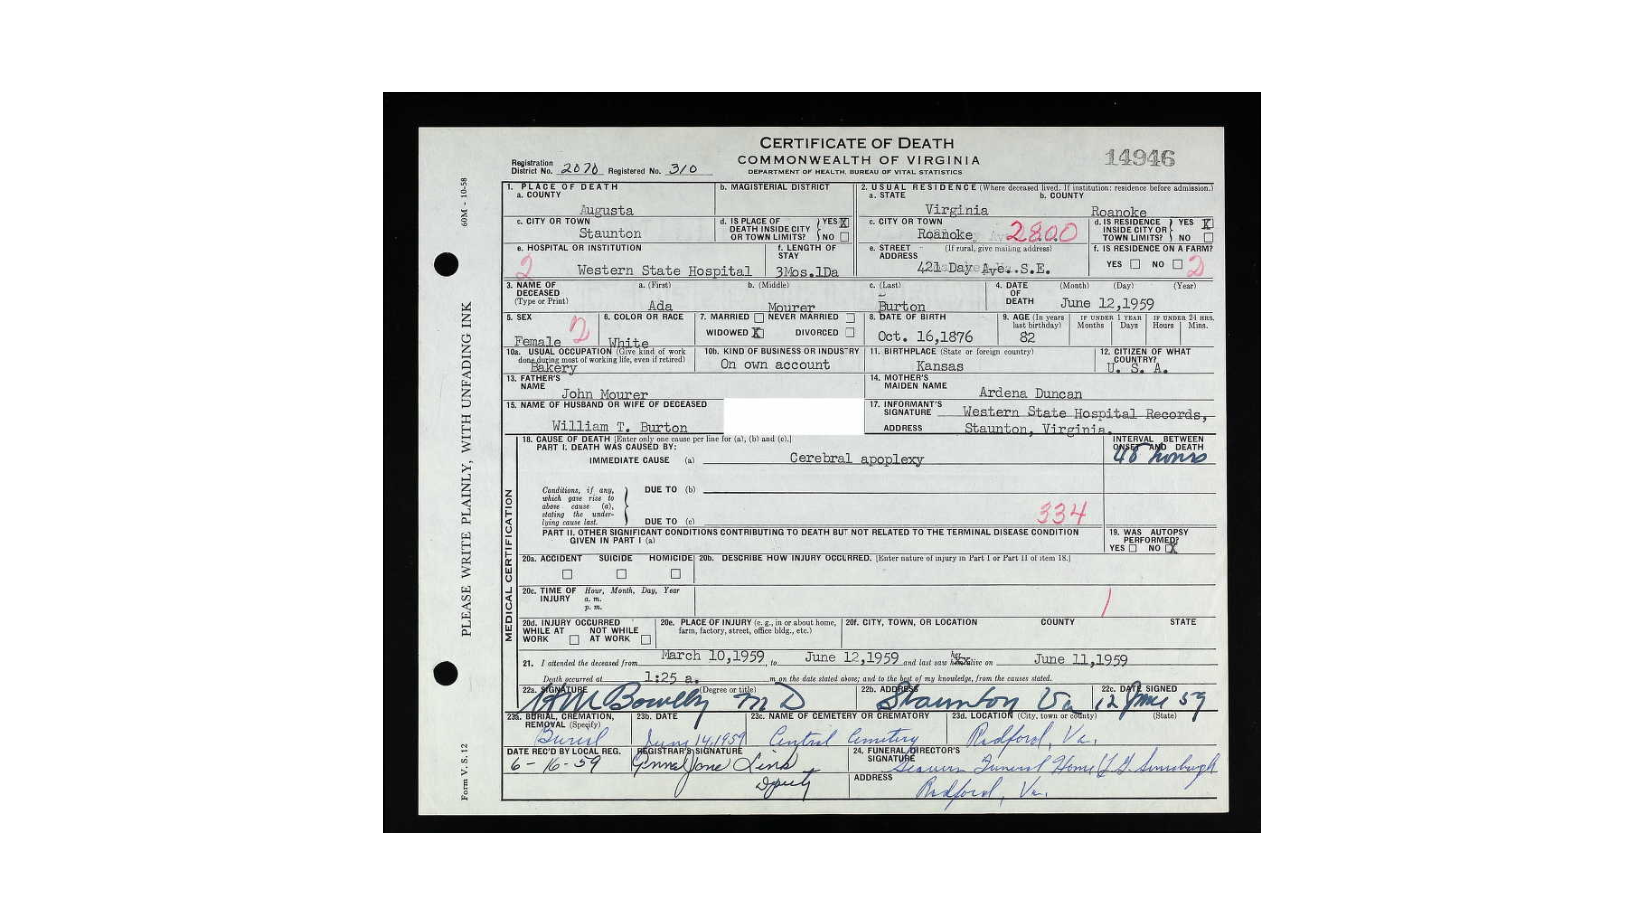 CERTIFICATE OF DEATH
COMMONWEALTH OF VIRGINIA
DEPARTMENT OF HEALTH, BUREAU OF VITAL STATISTICS
14946
Registration District No. 2070 Registered No. 310
60M - 10-58
PLEASE WRITE PLAINLY, WITH UNFADING INK
Form V. S. 12
1. PLACE OF DEATH
a. COUNTY Augusta
b. MAGISTERIAL DISTRICT
2. USUAL RESIDENCE (Where deceased lived. If institution: residence before admission.)
a. STATE Virginia
b. COUNTY Roanoke
c. CITY OR TOWN Staunton
d. IS PLACE OF DEATH INSIDE CITY OR TOWN LIMITS? YES X NO
c. CITY OR TOWN Roanoke 2800
d. IS RESIDENCE INSIDE CITY OR TOWN LIMITS? YES X NO
e. HOSPITAL OR INSTITUTION 2 Western State Hospital
f. LENGTH OF STAY 3Mos.1Da
e. STREET ADDRESS (If rural, give mailing address) 421 Day Ave..S.E.
f. IS RESIDENCE ON A FARM? YES NO 2
3. NAME OF DECEASED (Type or Print)
a. (First) Ada
b. (Middle) Mourer
c. (Last) Burton
4. DATE OF DEATH (Month) (Day) (Year) June 12,1959
5. SEX Female 2
6. COLOR OR RACE White
7. MARRIED NEVER MARRIED WIDOWED X DIVORCED
8. DATE OF BIRTH Oct. 16,1876
9. AGE (In years last birthday) 82
IF UNDER 1 YEAR Months Days
IF UNDER 24 HRS. Hours Mins.
10a. USUAL OCCUPATION (Give kind of work done during most of working life, even if retired) Bakery
10b. KIND OF BUSINESS OR INDUSTRY On own account
11. BIRTHPLACE (State or foreign country) Kansas
12. CITIZEN OF WHAT COUNTRY? U. S. A.
13. FATHER'S NAME John Mourer
14. MOTHER'S MAIDEN NAME Ardena Duncan
15. NAME OF HUSBAND OR WIFE OF DECEASED William T. Burton
17. INFORMANT'S SIGNATURE Western State Hospital Records,
ADDRESS Staunton, Virginia.
MEDICAL CERTIFICATION
18. CAUSE OF DEATH [Enter only one cause per line for (a), (b) and (c).]
PART I. DEATH WAS CAUSED BY:
IMMEDIATE CAUSE (a) Cerebral apoplexy
INTERVAL BETWEEN ONSET AND DEATH hours
Conditions, if any, which gave rise to above cause (a), stating the underlying cause last.
DUE TO (b)
DUE TO (c) 334
PART II. OTHER SIGNIFICANT CONDITIONS CONTRIBUTING TO DEATH BUT NOT RELATED TO THE TERMINAL DISEASE CONDITION GIVEN IN PART I (a)
19. WAS AUTOPSY PERFORMED? YES NO X
20a. ACCIDENT SUICIDE HOMICIDE
20b. DESCRIBE HOW INJURY OCCURRED. [Enter nature of injury in Part I or Part II of item 18.]
20c. TIME OF INJURY Hour, Month, Day, Year a. m. p. m.
20d. INJURY OCCURRED WHILE AT WORK NOT WHILE AT WORK
20e. PLACE OF INJURY (e. g., in or about home, farm, factory, street, office bldg., etc.)
20f. CITY, TOWN, OR LOCATION COUNTY STATE
21. I attended the deceased from March 10,1959 to June 12,1959 and last saw her alive on June 11,1959
Death occurred at 1:25 a. m on the date stated above; and to the best of my knowledge, from the causes stated.
22a. SIGNATURE (Degree or title) M D
22b. ADDRESS Staunton Va
22c. DATE SIGNED 12 June 59
23a. BURIAL, CREMATION, REMOVAL (Specify) Burial
23b. DATE June 14,1959
23c. NAME OF CEMETERY OR CREMATORY Central Cemetery
23d. LOCATION (City, town or county) (State) Radford, Va.
DATE REC'D BY LOCAL REG. 6-16-59
REGISTRAR'S SIGNATURE Deputy
24. FUNERAL DIRECTOR'S SIGNATURE Funeral Home
ADDRESS Radford, Va.